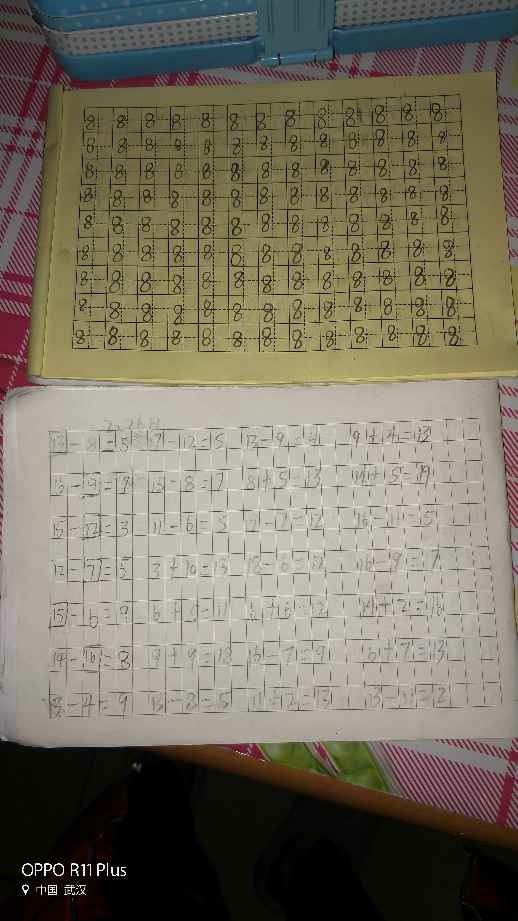 8 8 8 8 8 8 8 8 8 8 8 8 8
8 8 8 8 8 8 8 8 8 8 8 8 8
8 8 8 8 8 8 8 8 8 8 8 8 8
8 8 8 8 8 8 8 8 8 8 8 8 8
8 8 8 8 8 8 8 8 8 8 8 8 8
8 8 8 8 8 8 8 8 8 8 8 8 8
8 8 8 8 8 8 8 8 8 8 8 8 8
8 8 8 8 8 8 8 8 8 8 8 8 8
8 8 8 8 8 8 8 8 8 8 8 8 8
13-8=5 17-12=5 13-9=4 9+4=13
15-8=7 8+5=13 14+5=19
15-12=3 11-6=5
12-7=5 3+10=13 18-6=12 16-9=7
15-6=9 6+5=11 6+6=12 14+2=16
9+9=18 16-7=9 6+7=13
13-4=9 13-8=5 11+2=13 13-11=2
OPPO R11 Plus
中国 武汉